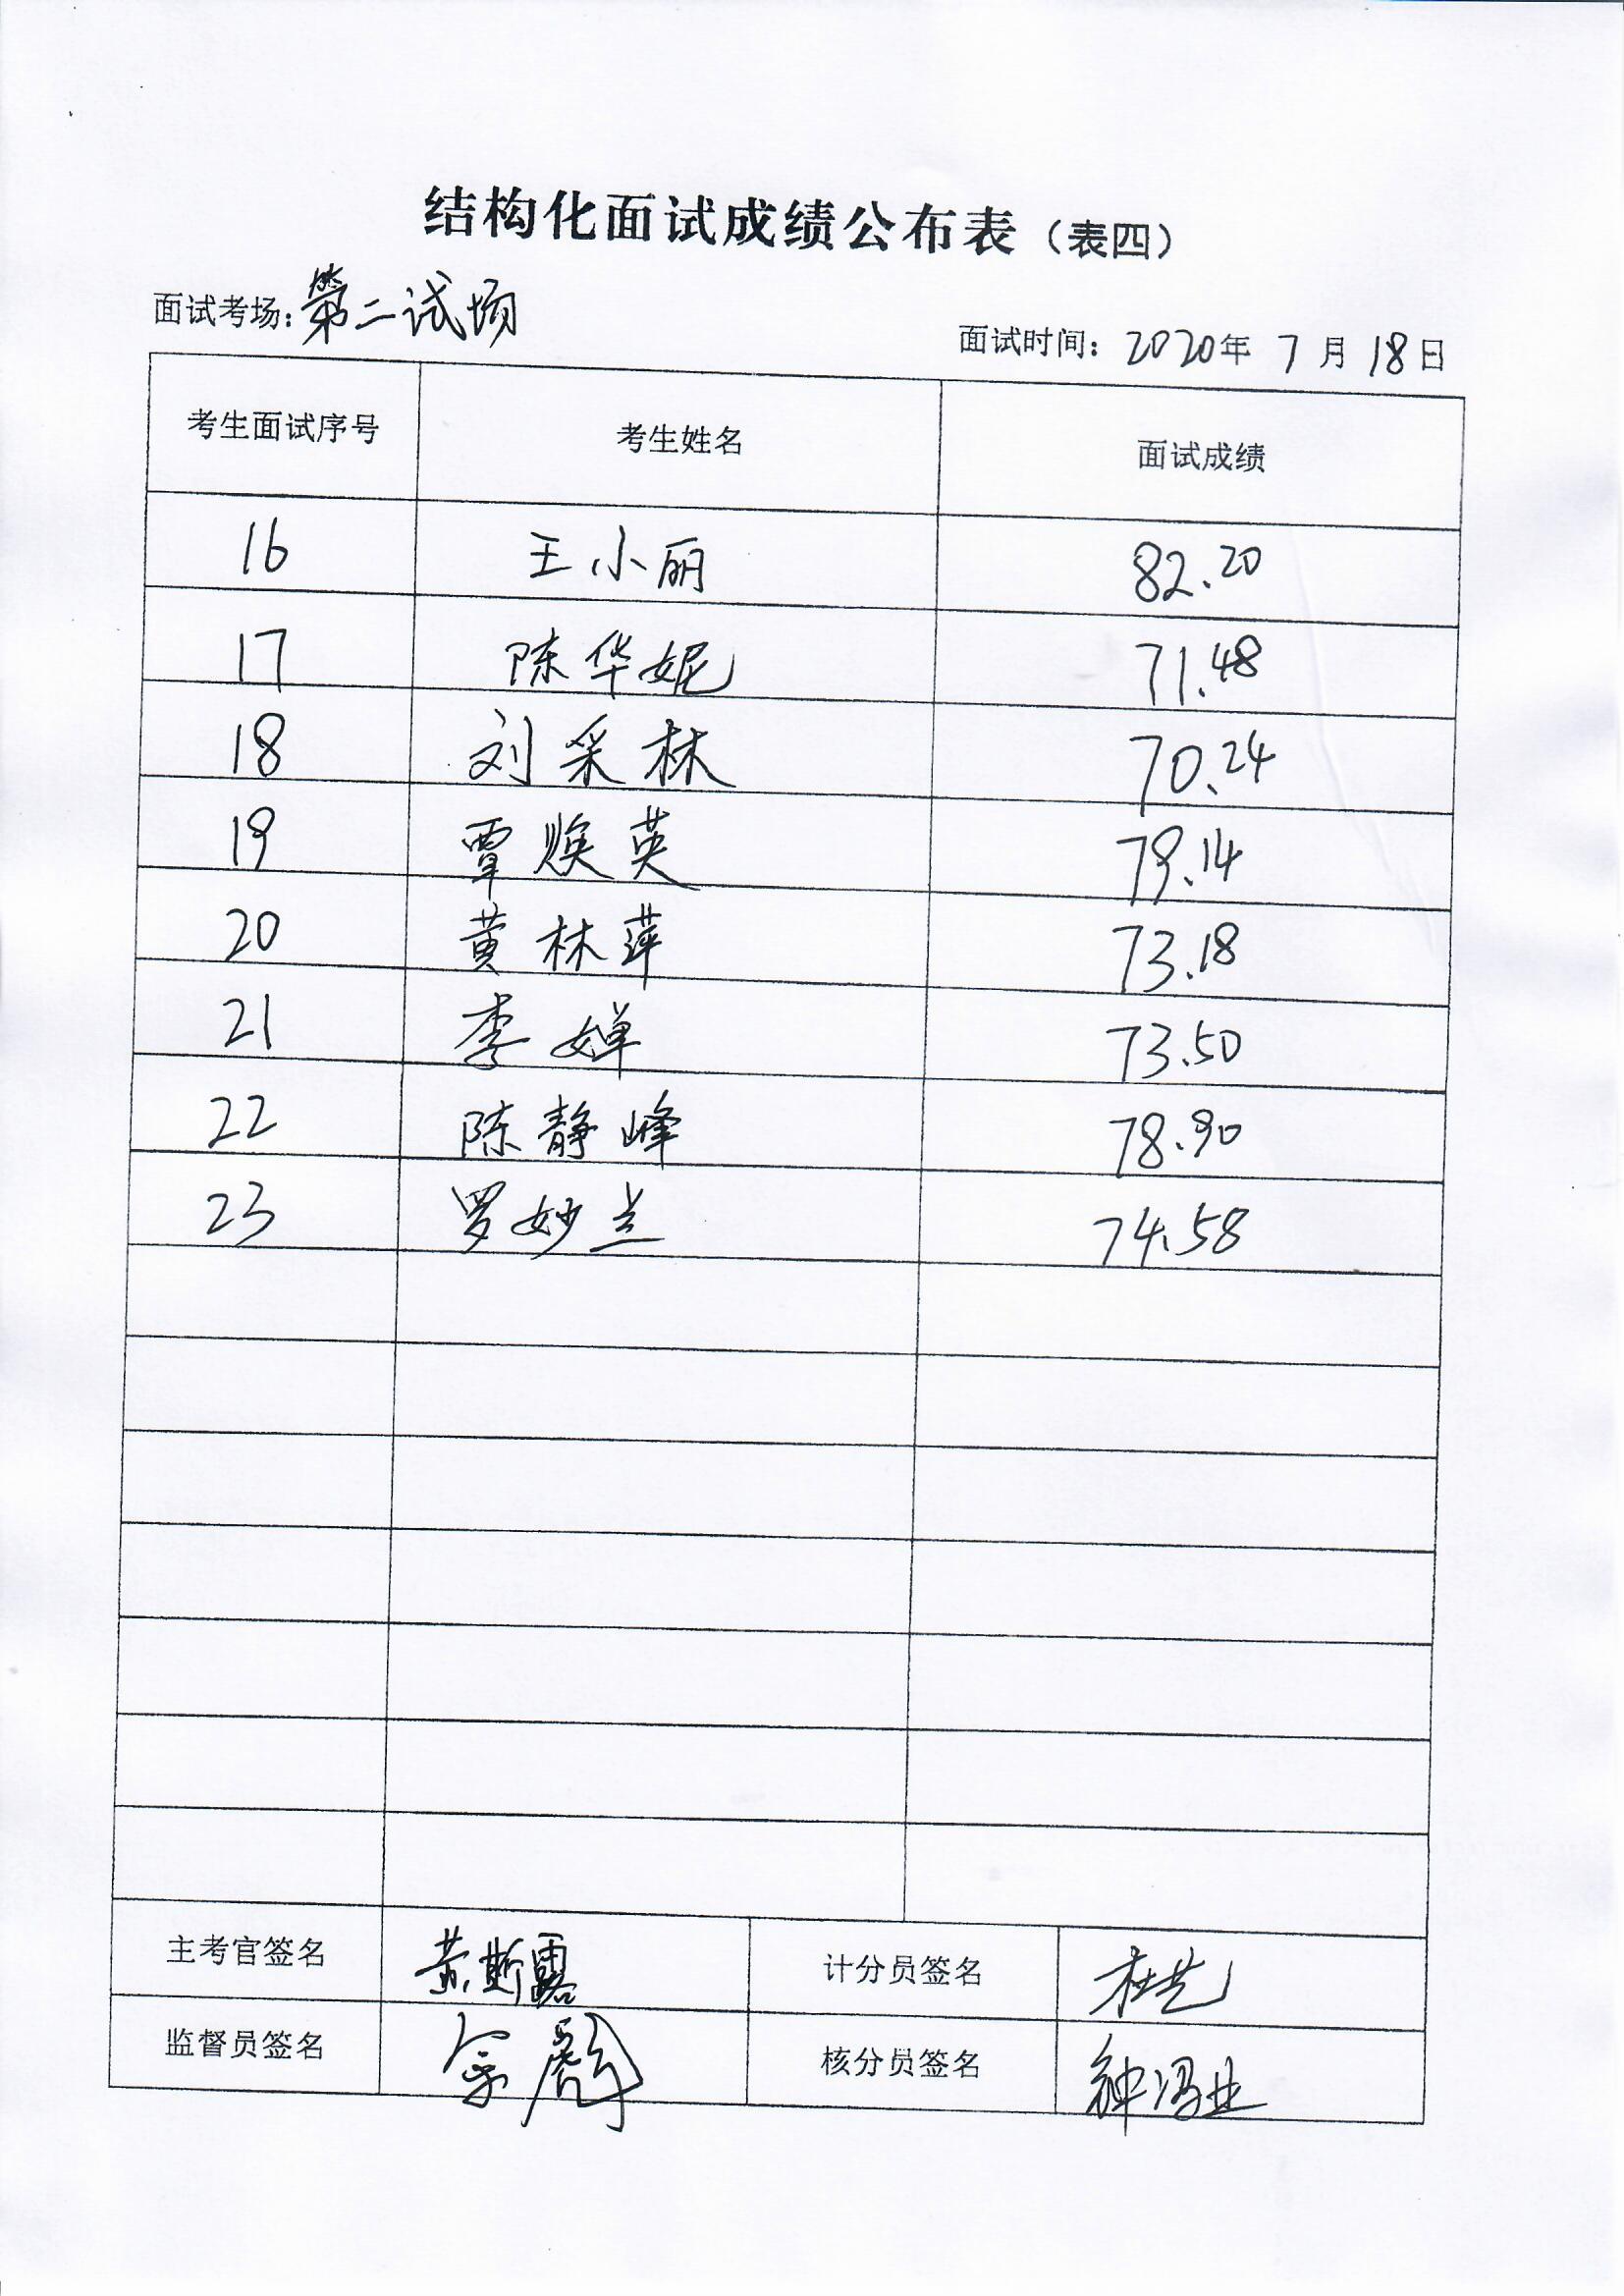 结构化面试成绩公布表（表四）
面试考场：第二试场
面试时间：2020年 7月 18日
考生面试序号 考生姓名 面试成绩
16 王小丽 82.20
17 陈华妮 71.48
18 刘采林 70.24
19 覃焕英 79.14
20 黄林萍 73.18
21 李婵 73.50
22 陈静峰 78.90
23 罗妙兰 74.58
主考官签名 黄斯露 计分员签名 杜艺
监督员签名 核分员签名